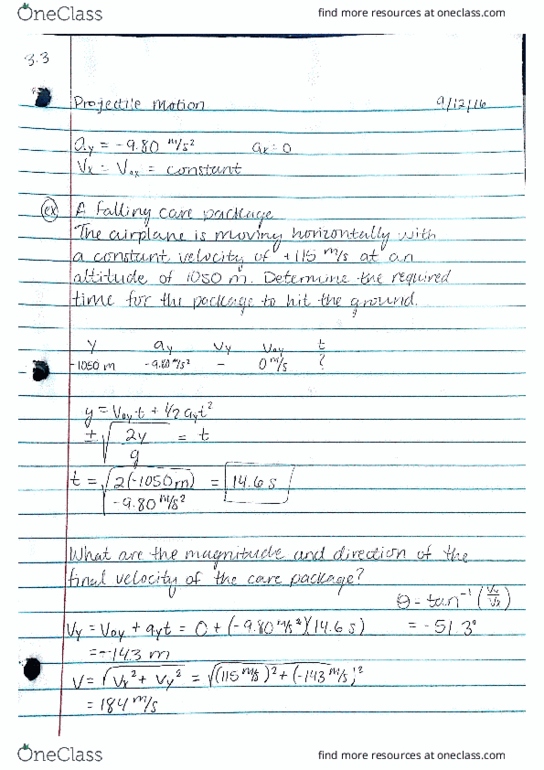 OneClass find more resources at oneclass.com
3.3
Projectile Motion 9/12/16
ay = -9.80 m/s² ax = 0
Vx = Vox = constant
ex A falling care package
The airplane is moving horizontally with
a constant velocity of +115 m/s at an
altitude of 1050 m. Determine the required
time for the package to hit the ground.
y ay vy voy t
-1050 m -9.80 m/s² - 0 m/s ?
y = Voyt + 1/2 ayt²
± √(2y/g) = t
t = √(2(-1050m)/-9.80 m/s²) = 14.6 s
What are the magnitude and direction of the
final velocity of the care package?
θ = tan⁻¹ (Vy/Vx)
Vy = Voy + ayt = 0 + (-9.80 m/s²)(14.6 s) = -51.3°
= -143 m
V = √Vx² + Vy² = √(115 m/s)² + (-143 m/s)²
= 184 m/s
OneClass find more resources at oneclass.com